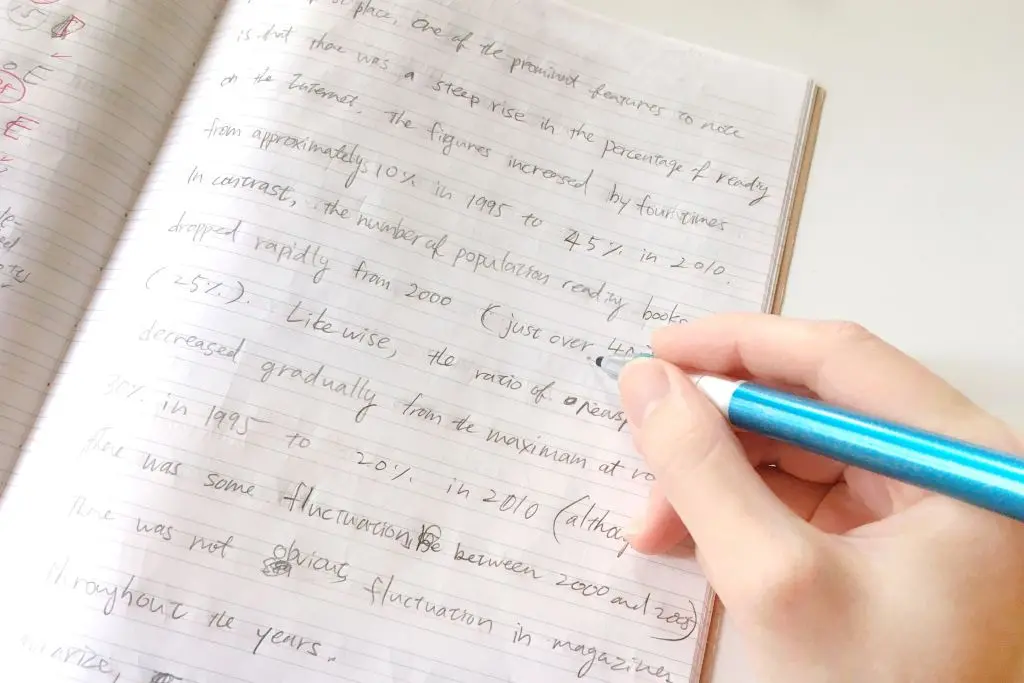 place, one of the prominent features to note
is that there was a steep rise in the percentage of reading
on the Internet, the figures increased by four times
from approximately 10% in 1995 to 45% in 2010.
In contrast, the number of population reading books
dropped rapidly from 2000 (just over
(25%). Likewise, the ratio of
decreased gradually from the maximam at
30% in 1995 to 20% in 2010 (althoug
there was some fluctuation between 2000 and 2005)
There was not obvious fluctuation in magazines
throughout the years.